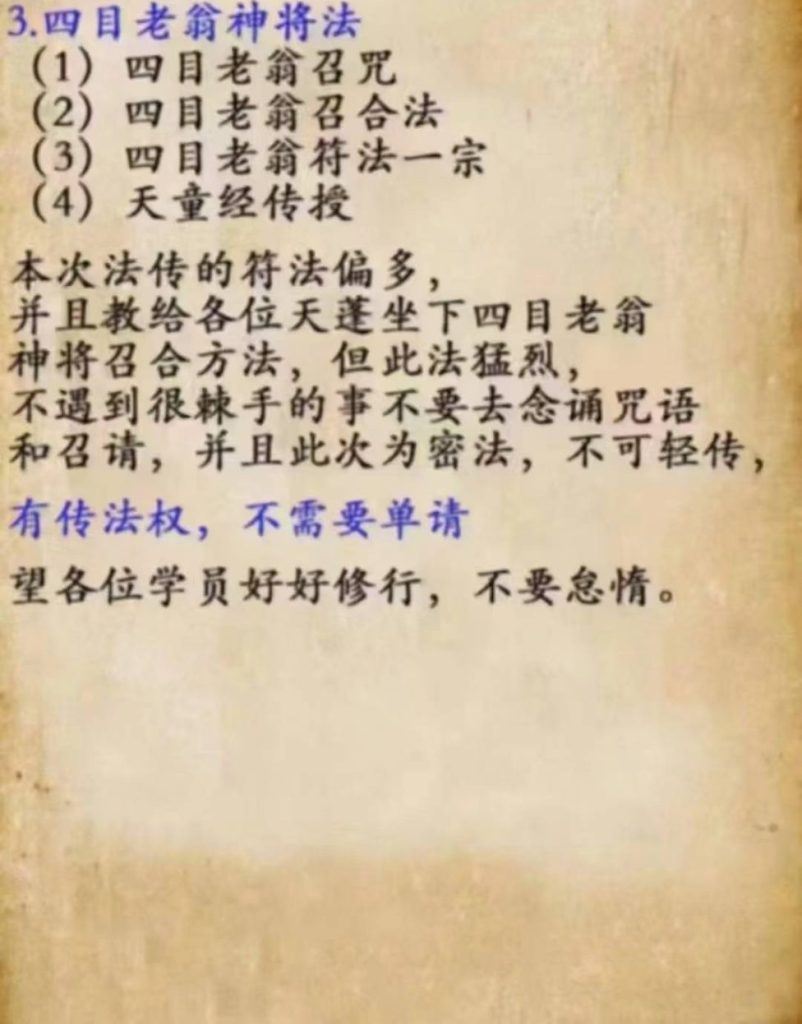 3.四目老翁神将法
（1）四目老翁召咒
（2）四目老翁召合法
（3）四目老翁符法一宗
（4）天童经传授
本次法传的符法偏多，
并且教给各位天蓬坐下四目老翁
神将召合方法，但此法猛烈，
不遇到很棘手的事不要去念诵咒语
和召请，并且此次为密法，不可轻传，
有传法权，不需要单请
望各位学员好好修行，不要怠惰。